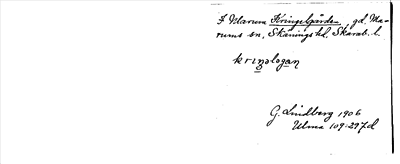 F Marum Kringelgården, gd, Ma-
rums sn, Skånings hd. Skarab. l.
kringlogan
G. Lindberg 1906
Ulma 109:297 d